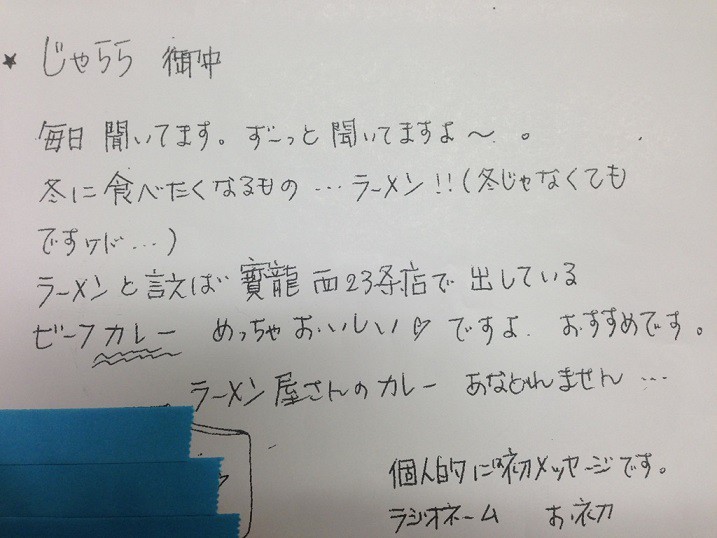 ★ じゃらら 御中
毎日 聞いてます。ずーっと 聞いてますよ〜 。
冬に 食べたくなるもの … ラーメン!!(冬じゃなくても
ですけど…)
ラーメンと言えば 寳龍 西23条店で 出している
ビーフカレー めっちゃ おいしい♡ ですよ. おすすめです。
ラーメン屋さんのカレー あなどれません…
個人的には初メッセージです。
ラジオネーム お初